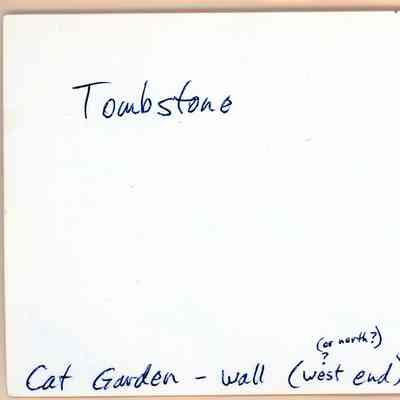 Tombstone
(or north?)
?
Cat Garden - wall (west end)